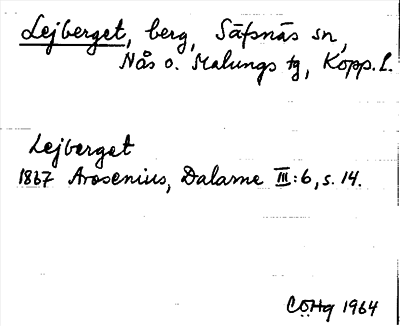 Lejberget, berg, Säfsnäs sn,
Nås o. Malungs tg, Kopp. l.
Lejberget
1867 Arosenius, Dalarne III:6, s. 14.
CÖHg 1964